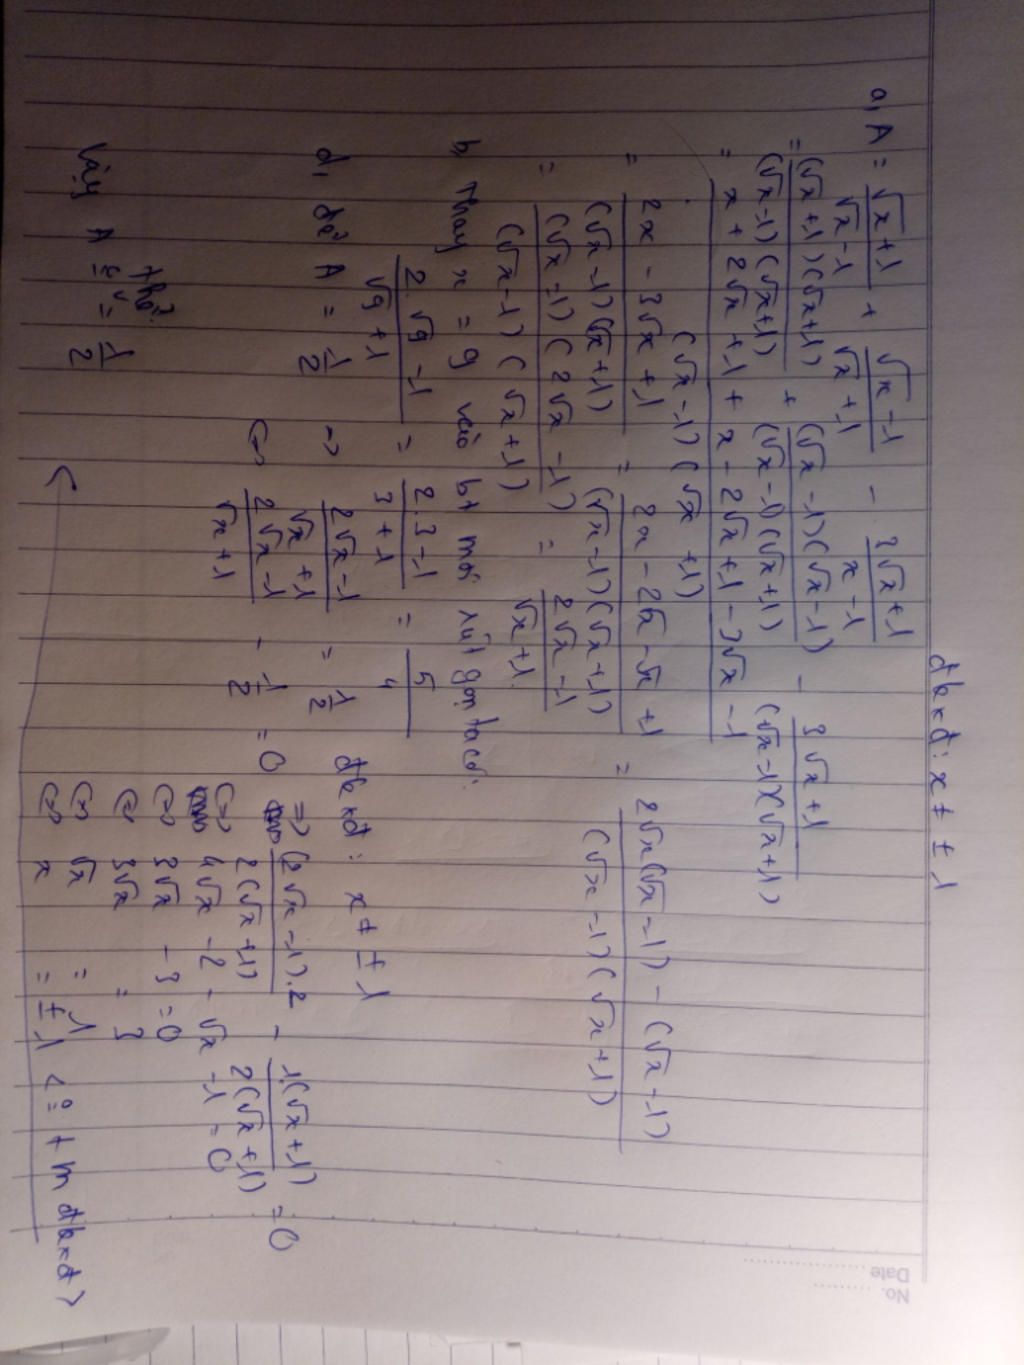 No. ............
Date ............
đkxđ: x ≠ ± 1
a, A = (√x + 1)/(√x - 1) + (√x - 1)/(√x + 1) - (3√x + 1)/(x - 1)
= (√x + 1)(√x + 1)/(√x - 1)(√x + 1) + (√x - 1)(√x - 1)/(√x - 1)(√x + 1) - (3√x + 1)/(√x - 1)(√x + 1)
= (x + 2√x + 1 + x - 2√x + 1 - 3√x - 1)/(√x - 1)(√x + 1)
= (2x - 3√x + 1)/(√x - 1)(√x + 1) = (2x - 2√x - √x + 1)/(√x - 1)(√x + 1) = (2√x(√x - 1) - (√x - 1))/(√x - 1)(√x + 1)
= (√x - 1)(2√x - 1)/(√x - 1)(√x + 1) = (2√x - 1)/(√x + 1)
b, Thay x = 9 vào bt mới rút gọn ta có:
(2.√9 - 1)/(√9 + 1) = (2.3 - 1)/(3 + 1) = 5/4
d, để A = 1/2 => (2√x - 1)/(√x + 1) = 1/2 đkxđ: x ≠ ± 1
<=> (2√x - 1)/(√x + 1) - 1/2 = 0
=> (2√x - 1).2/2(√x + 1) - 1(√x + 1)/2(√x + 1) = 0
<=> 4√x - 2 - √x - 1 = 0
<=> 3√x - 3 = 0
<=> 3√x = 3
<=> √x = 1
<=> x = ± 1 < tm đkxđ >
Vậy A = 1/2